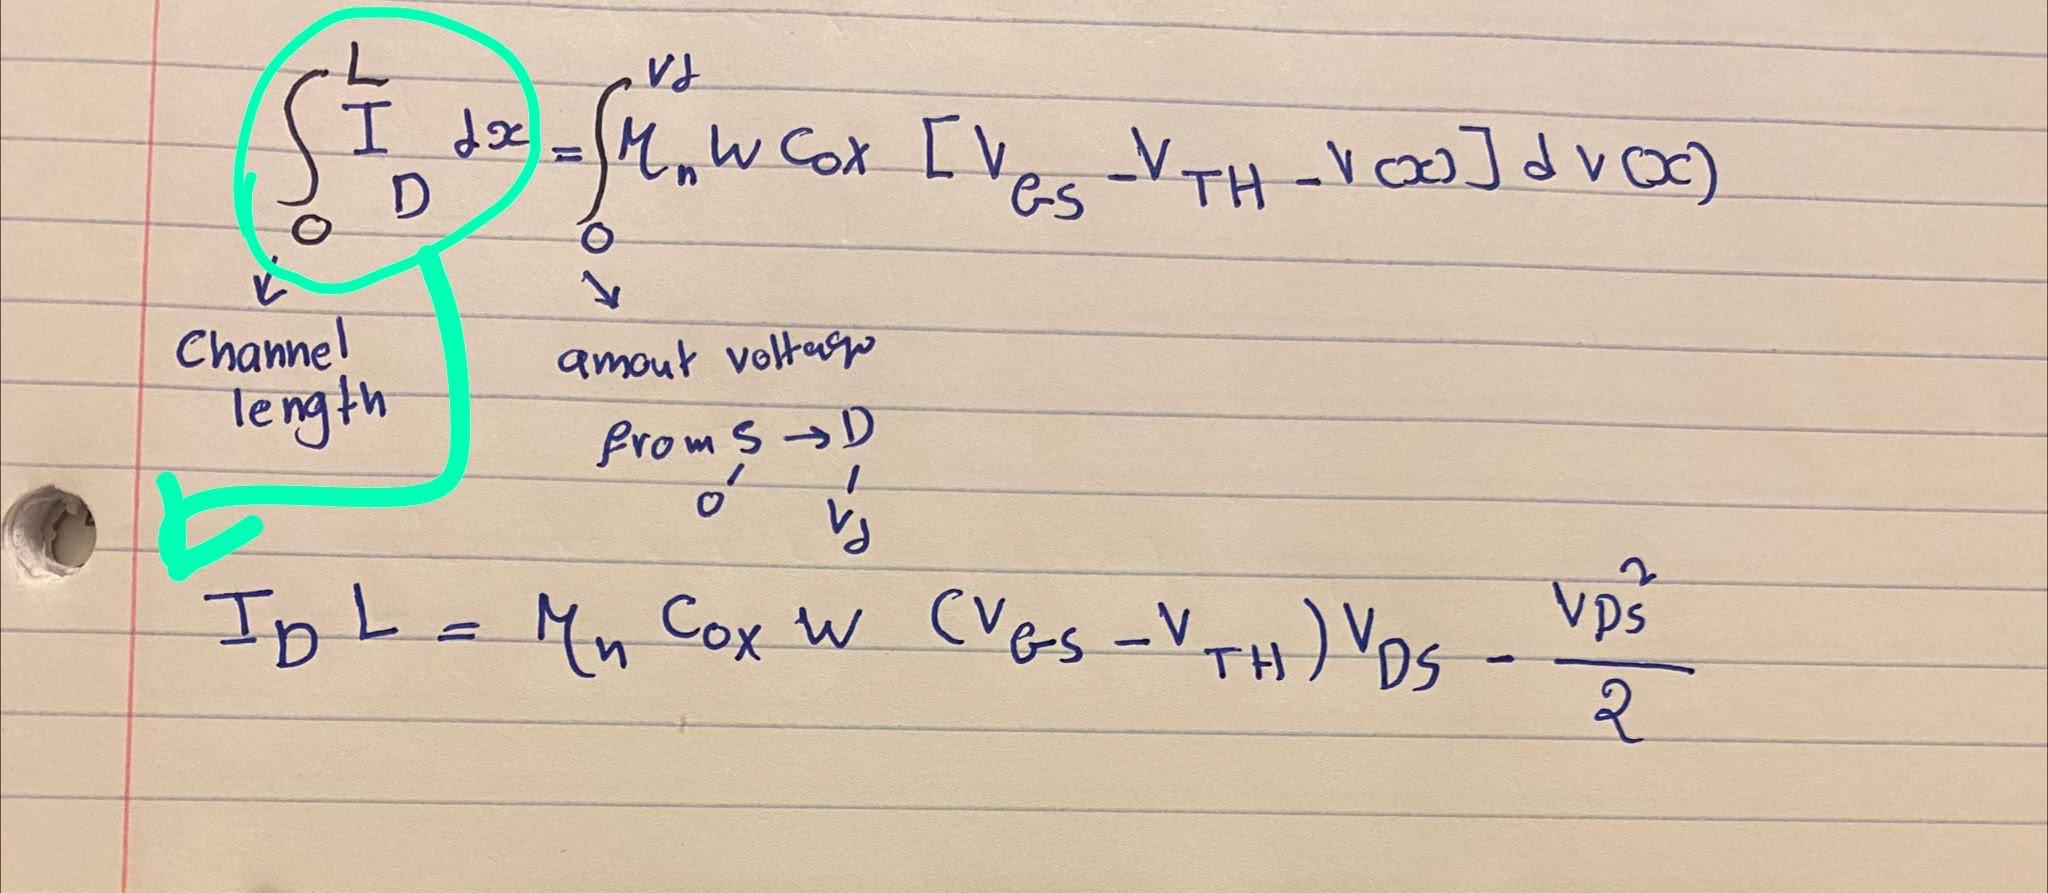 ∫₀ᴸ I_D dx = ∫₀^Vd μₙ W Cox [V_GS - V_TH - V(x)] d V(x)
Channel length
amout voltage
from S → D
0 Vd
I_D L = μₙ Cox W (V_GS - V_TH) V_DS - V_DS² / 2